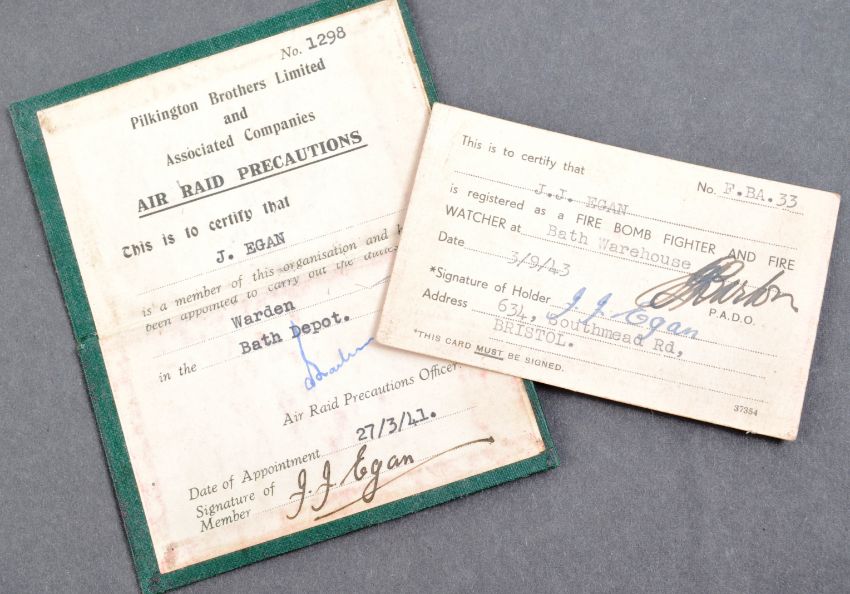 No. 1298
Pilkington Brothers Limited
and
Associated Companies
AIR RAID PRECAUTIONS
This is to certify that
J. EGAN
is a member of this organisation and
been appointed to carry out the duties
Warden
in the Bath Depot.
Air Raid Precautions Officer.
Date of Appointment 27/3/41.
Signature of
Member J. J. Egan
This is to certify that No. F.BA.33
J.J. EGAN
is registered as a FIRE BOMB FIGHTER AND FIRE
WATCHER at Bath Warehouse
Date 3/9/43
P.A.D.O.
*Signature of Holder J J Egan
Address 634, Southmead Rd,
BRISTOL.
*THIS CARD MUST BE SIGNED.
37354